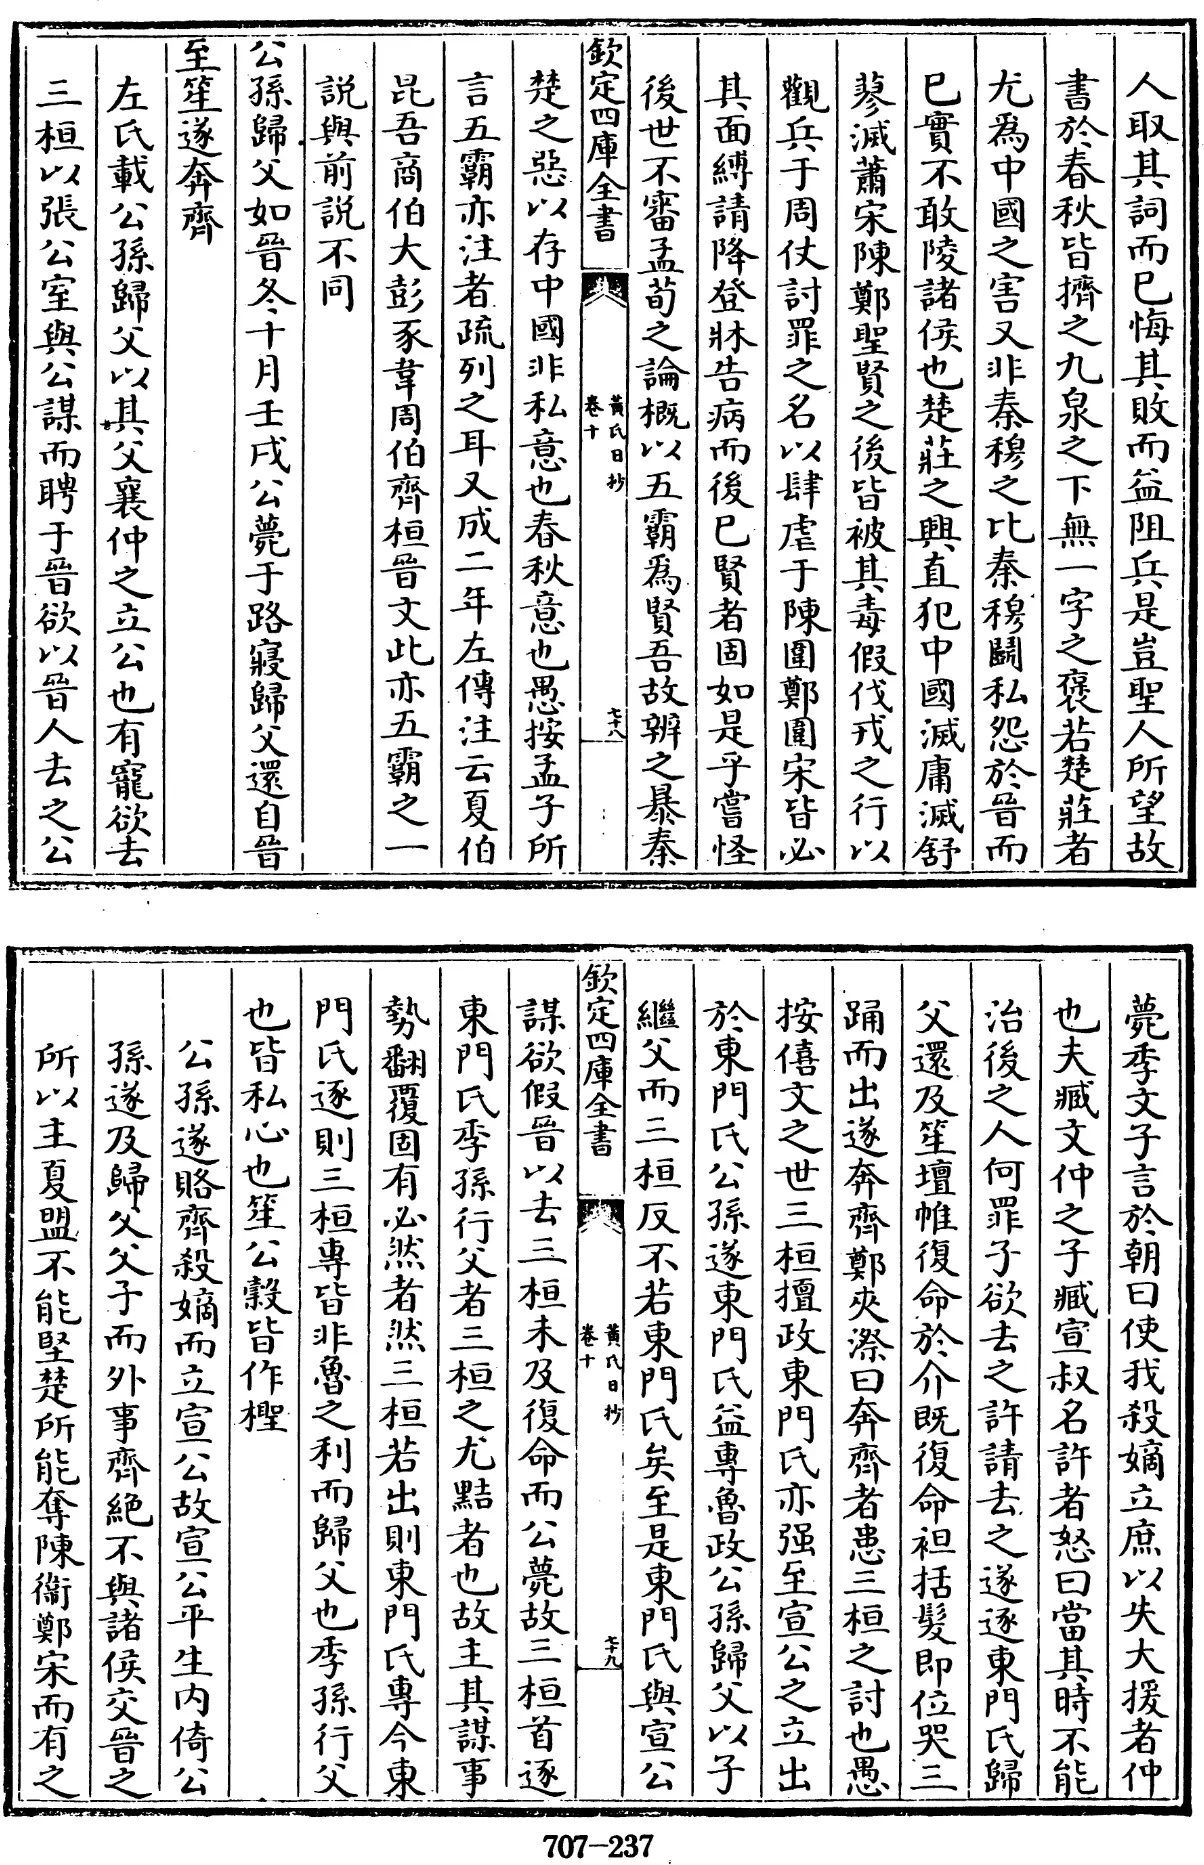 人取其詞而已悔其敗而益阻兵是豈聖人所望故
書於春秋皆擠之九泉之下無一字之褒若楚莊者
尤爲中國之害又非秦穆之比秦穆鬭私怨於晉而
已實不敢陵諸侯也楚莊之興直犯中國滅庸滅舒
蓼滅蕭宋陳鄭聖賢之後皆被其毒假伐戎之行以
觀兵于周仗討罪之名以肆虐于陳圍鄭圍宋皆必
其面縛請降登牀告病而後已賢者固如是乎嘗怪
後世不審孟荀之論概以五霸爲賢吾故辨之暴秦
欽定四庫全書
黃氏日抄
卷十
七十八
楚之惡以存中國非私意也春秋意也愚按孟子所
言五霸亦注者疏列之耳又成二年左傳注云夏伯
昆吾商伯大彭豕韋周伯齊桓晉文此亦五霸之一
説與前説不同
公孫歸父如晉冬十月壬戌公薨于路寢歸父還自晉
至笙遂奔齊
左氏載公孫歸父以其父襄仲之立公也有寵欲去
三桓以張公室與公謀而聘于晉欲以晉人去之公
薨季文子言於朝曰使我殺嫡立庶以失大援者仲
也夫臧文仲之子臧宣叔名許者怒曰當其時不能
治後之人何罪子欲去之許請去之遂逐東門氏歸
父還及笙壇帷復命於介既復命袒括髮即位哭三
踊而出遂奔齊鄭夾漈曰奔齊者患三桓之討也愚
按僖文之世三桓擅政東門氏亦强至宣公之立出
於東門氏公孫遂東門氏益專魯政公孫歸父以子
繼父而三桓反不若東門氏矣至是東門氏與宣公
欽定四庫全書
黃氏日抄
卷十
七十九
謀欲假晉以去三桓未及復命而公薨故三桓首逐
東門氏季孫行父者三桓之尤黠者也故主其謀事
勢翻覆固有必然者然三桓若出則東門氏專今東
門氏逐則三桓專皆非魯之利而歸父也季孫行父
也皆私心也笙公穀皆作檉
公孫遂賂齊殺嫡而立宣公故宣公平生内倚公
孫遂及歸父父子而外事齊絶不與諸侯交晉之
所以主夏盟不能堅楚所能奪陳衞鄭宋而有之
707—237